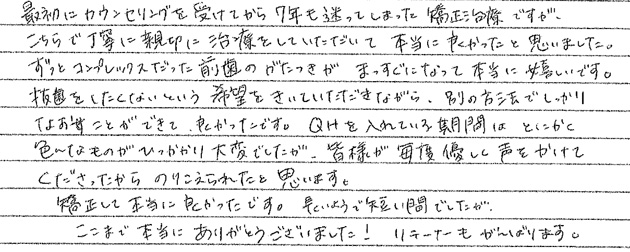 最初にカウンセリングを受けてから7年も迷ってしまった矯正治療ですが、
こちらで丁寧に親切に治療をしていただいて本当に良かったと思いました。
ずっとコンプレックスだった前歯のがたつきがまっすぐになって本当に嬉しいです。
抜歯をしたくないという希望をきいていただきながら、別の方法でしっかり
なおすことができて、良かったです。QHを入れている期間はとにかく
色んなものがひっかかり大変でしたが、皆様が毎度優しく声をかけて
くださったからのりこえられたと思います。
矯正して本当に良かったです。長いようで短い間でしたが、
ここまで本当にありがとうございました！リテーナーもがんばります。